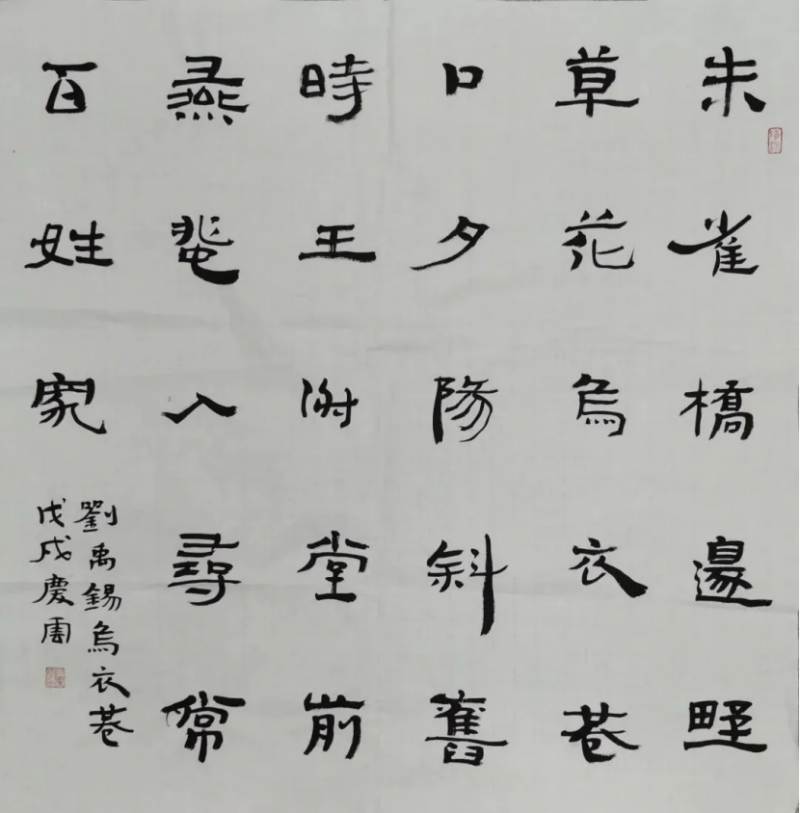 朱雀橋邊野
草花烏衣巷
口夕陽斜舊
時王謝堂前
燕蜚入尋常
百姓家
劉禹錫烏衣巷
戊戌慶